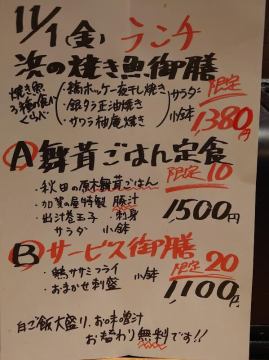 11/1(金) ランチ
浜の焼き魚御膳
焼き魚3種の食べくらべ
・縞ホッケ一夜干し焼き
・銀ダラ正油焼き
・サワラ柚庵焼き
サラダ
小鉢
限定
1,380円
A 舞茸ごはん定食
・秋田の原木舞茸ごはん
限定10
・加賀の屋特製 豚汁
・出汁巻玉子・刺身
サラダ 小鉢
1,500円
B サービス御膳
・鱧ササミフライ 小鉢
・おまかせ刺盛
限定20
1,100円
白ご飯大盛り、お味噌汁
お替わり無料です!!